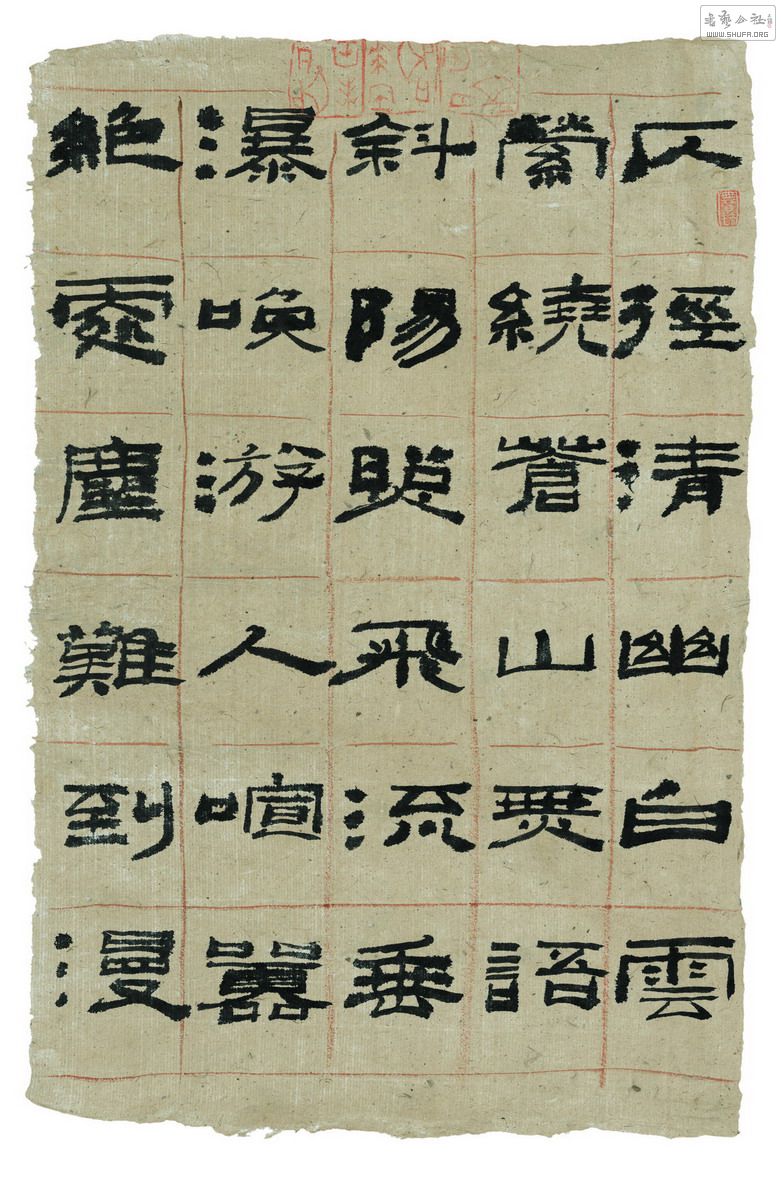 仄徑清幽白雲
縈繞蒼山無語
斜陽照飛流垂
瀑喚游人喧囂
絕處塵難到漫
书艺公社
WWW.SHUFA.ORG